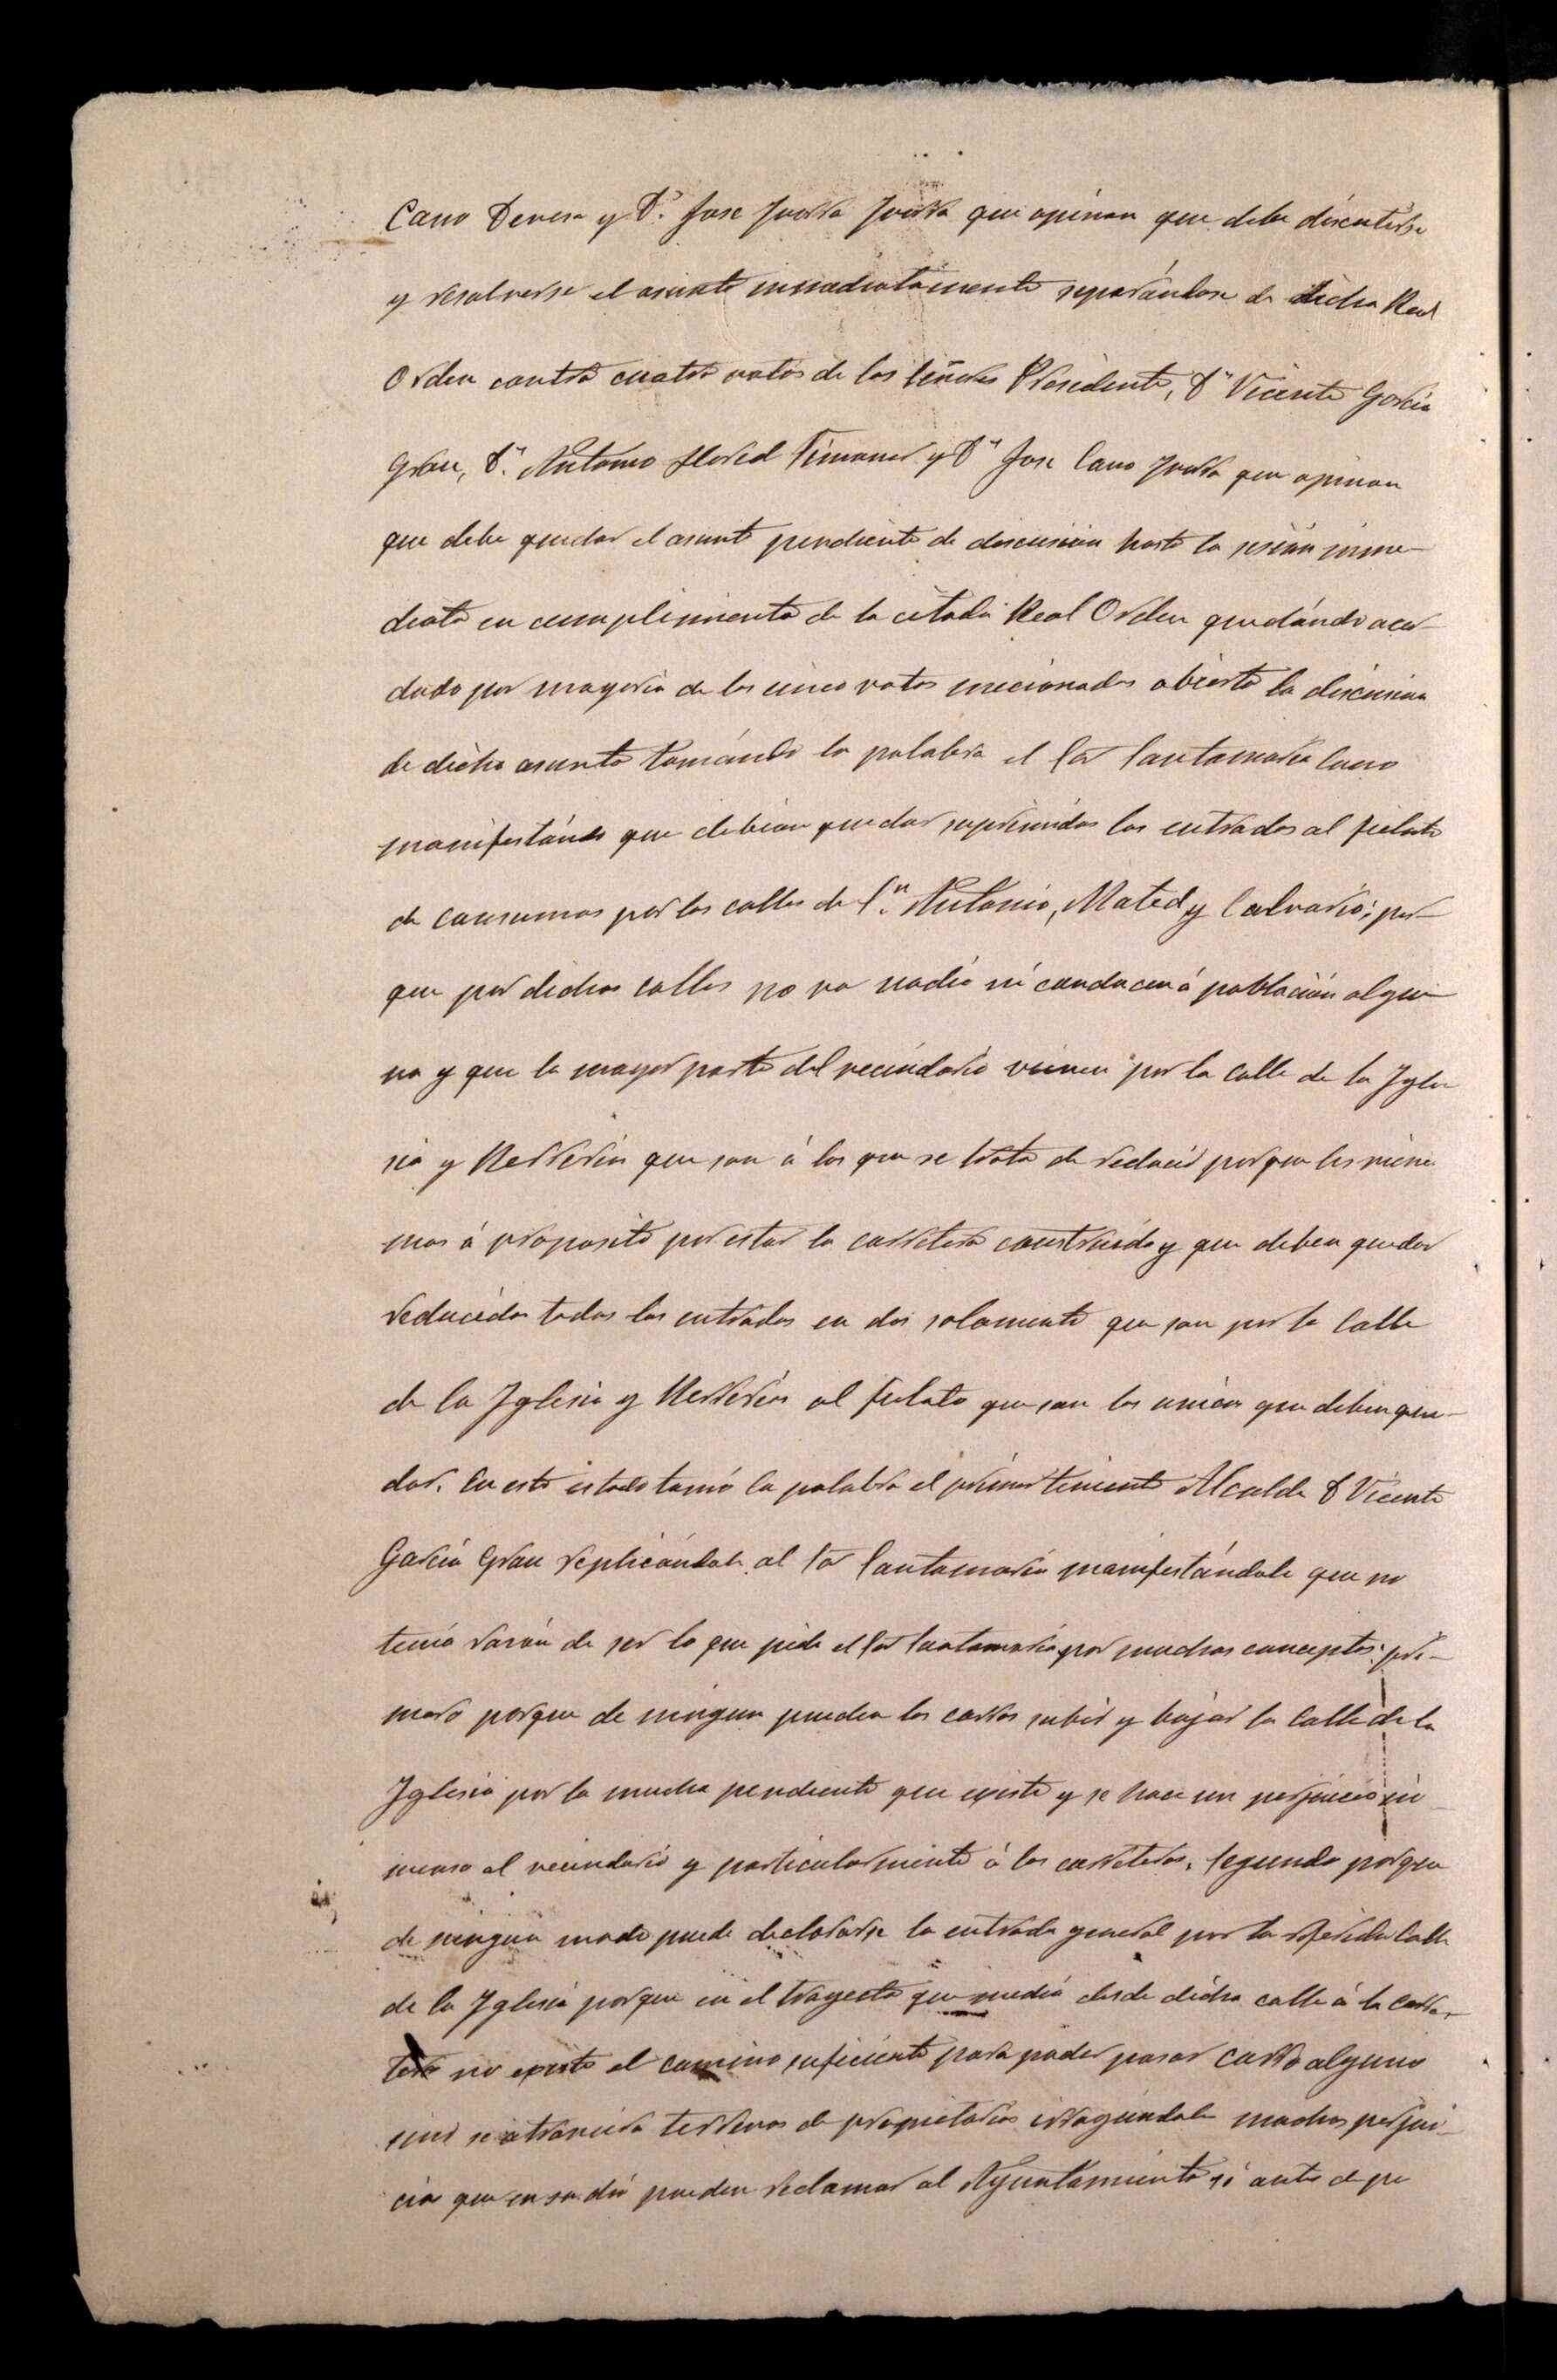 Cano Devesa y Dn. Jose Jvorra Jvorra que opinan que debe discutirse
y resolverse el asunto inmediatamente separándose de dicha Real
Orden contra cuatro votos de los Señores Presidente, Dn Vicente García
Grau, Dn. Antonio Llored Timoner y Dn Jose Cano Jvorra que opinan
que debe quedar el asunto pendiente de discusión hasta la sesión inme-
diata en cumplimiento de la citada Real Orden quedándo acor-
dado por mayoria de los cinco votos mecionados abierta la discusion
de dicho asunto tomándo la palabra el Sor Santamaria Cano
manifestándo que debian quedar suprimidas las entradas al fielato
de consumos por las calles de Sn. Antonio, Mated y Calvario; por-
que por dichas calles no va nadie ni conducen á población algu-
na y que la mayor parte del vecindario vienen por la calle de la Ygle
sia y Herrerias que son á las que se trata de reducir porque les viene
mas á proposito por estar la carretera construida y que deben quedar
reducidas todas las entradas en dos solamente que son por la Calle
de la Yglesia y Herrerias al fielato que son las unicas que deben que-
dar. En este estado tomó la palabra el primer teniente Alcalde D Vicente
García Grau replicándole al Sor Santamaria manifestándole que no
tenia razón de ser lo que pide el Sor Santamaria por muchos conceptos: pri-
mero porque de ningun pueden los carros subir y bajar la Calle de la
Yglesia por la mucha pendiente que existe y se hace un perjuicio in-
menso al vecindario y particularmente á los carreteros. Segundo porque
de ningun modo puede declararse la entrada general por la referida Calle
de la Yglesia porque en el trayecto que media desde dicha calle á la carre-
tera no existe el camino suficiente para poder pasar carro alguno
sino se atraviesa terrenos de propietarios irrogándole muchos perjui-
cios que en su dia pueden reclamar al Ayuntamiento si antes de pe